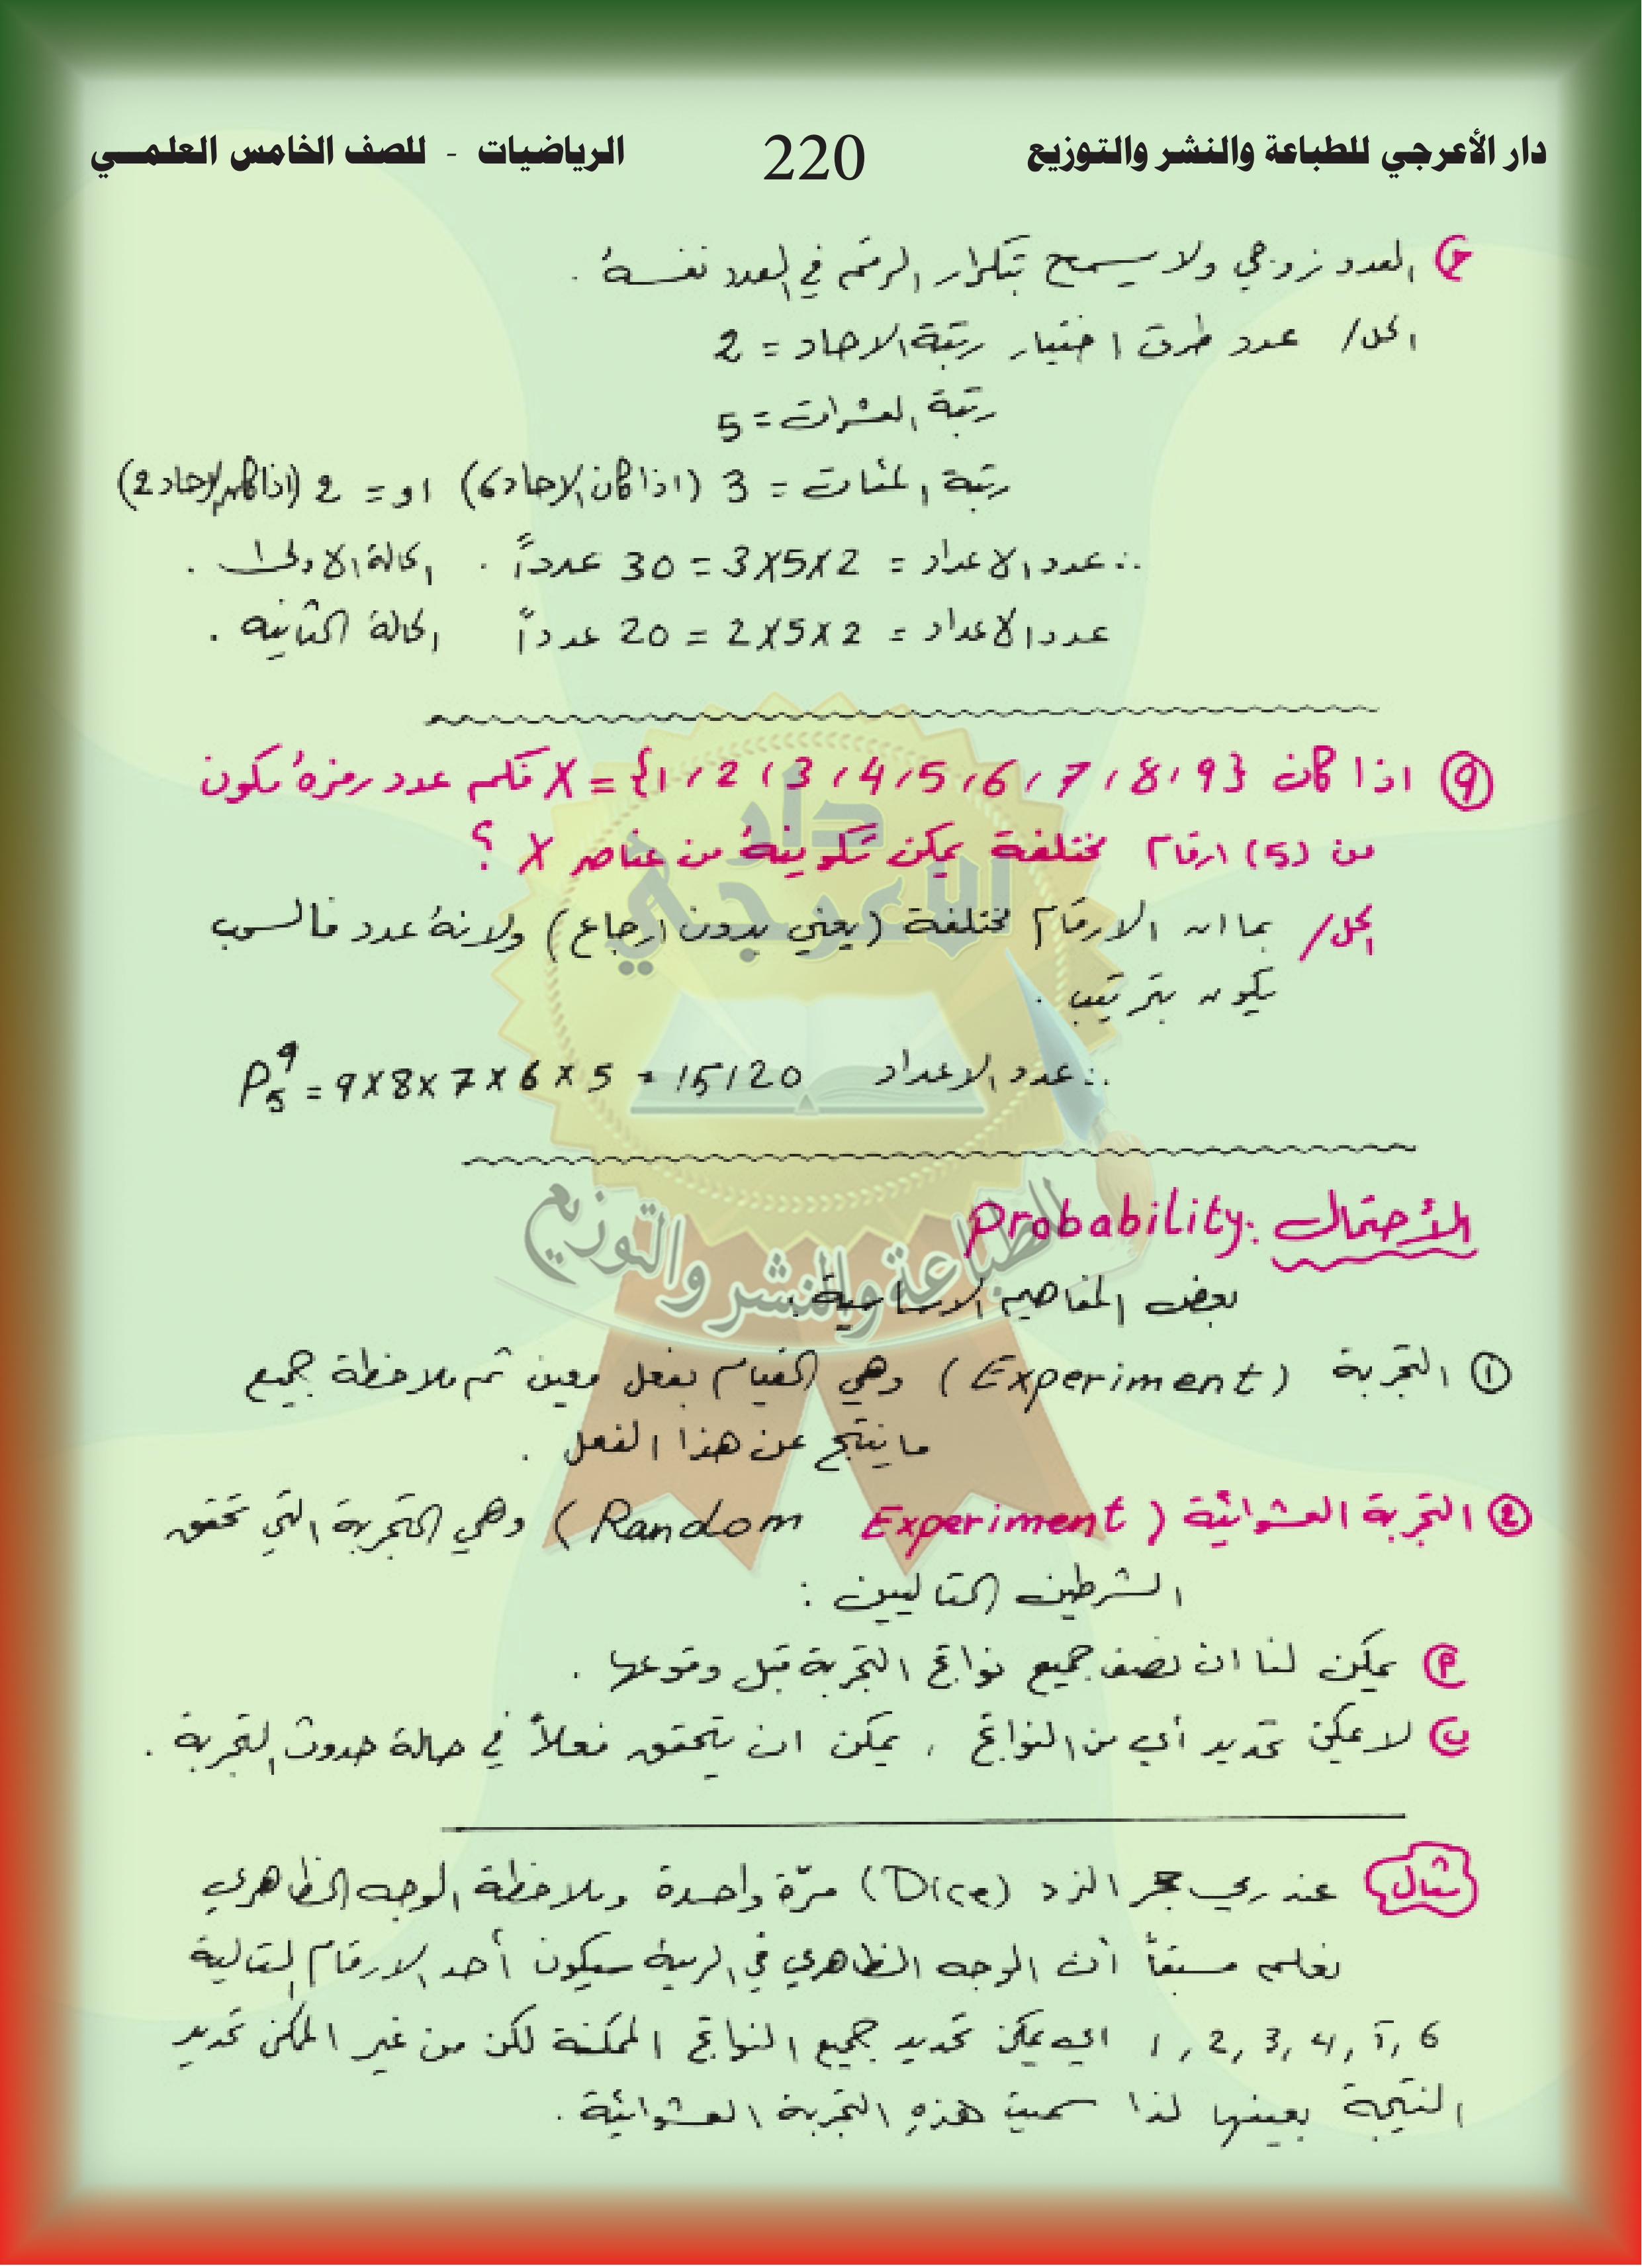 دار الأعرجي للطباعة والنشر والتوزيع 220 الرياضيات - للصف الخامس العلمي
ج) العدد زوجي ولا يسمح بتكرار الرقم في العدد نفسه .
الحل / عدد طرق اختيار رتبة الاحاد = 2
رتبة العشرات = 5
رتبة المئات = 3 (اذا كان الاحاد 6) او = 2 (اذا كان الاحاد 2)
∴ عدد الاعداد = 2×5×3 = 30 عدداً . الحالة الاولى .
عدد الاعداد = 2×5×2 = 20 عدداً الحالة الثانية .
9) اذا كان X = {1, 2, 3, 4, 5, 6, 7, 8, 9} فكم عدد رمزه مكون
من (5) ارقام مختلفة يمكن تكوينه من عناصر X ؟
الحل / بما ان الارقام مختلفة (يعني بدون ارجاع) ولانه عدد فالسحب
يكون بترتيب .
∴ عدد الاعداد P₅⁹ = 9×8×7×6×5 = 15120
الأحتمال : Probability
بعض المفاهيم الاساسية :
1) التجربة (Experiment) وهي القيام بفعل معين ثم ملاحظة جميع
ما ينتج عن هذا الفعل .
2) التجربة العشوائية (Random Experiment) وهي التجربة التي تحقق
الشرطين التاليين :
م) يمكن لنا ان نصف جميع نواتج التجربة قبل وقوعها .
ب) لا يمكن تحديد أي من النواتج , يمكن ان يتحقق فعلاً في حالة حدوث التجربة .
مثال عند رمي حجر النرد (Dice) مرّة واحدة وملاحظة الوجه الظاهري
نعلم مسبقاً أن الوجه الظاهري في الرمية سيكون أحد الارقام التالية
1, 2, 3, 4, 5, 6 اي يمكن تحديد جميع النواتج الممكنة لكن من غير الممكن تحديد
النتيجة بعينها لذا سميت هذه التجربة العشوائية .
دار الأعرجي
للطباعة والنشر والتوزيع